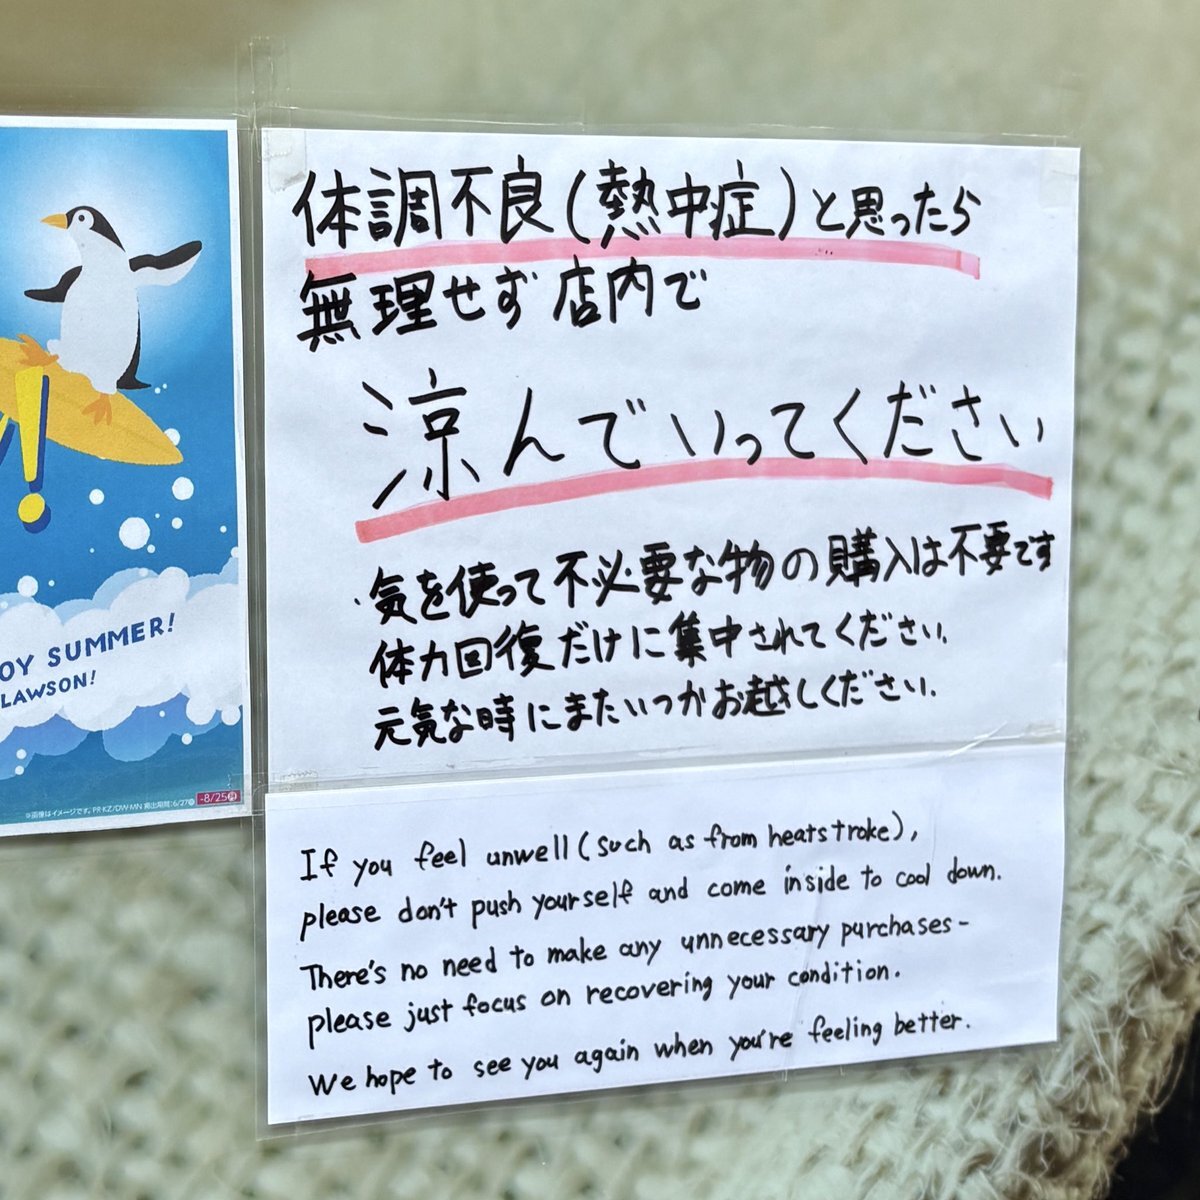 体調不良(熱中症)と思ったら
無理せず店内で
涼んでいってください
気を使って不必要な物の購入は不要です
体力回復だけに集中されてください.
元気な時にまたいつかお越しください.
If you feel unwell (such as from heatstroke),
please don't push yourself and come inside to cool down.
There's no need to make any unnecessary purchases-
please just focus on recovering your condition.
We hope to see you again when you're feeling better.
!
OY SUMMER!
LAWSON!
※画像はイメージです。PR-KZ/DW-MN 掲出期間:6/27
-8/25㊊